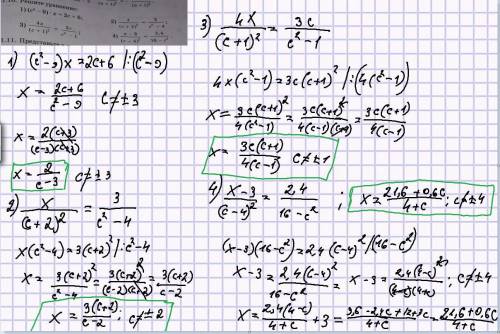 1.10. Решите уравнение:
1) (c² - 9)x = 2c+6 /:(c² - 9)
x = (2c+6)/(c² - 9)   c ≠ ± 3
x = 2(c+3)/((c-3)(c+3))
x = 2/(c-3)   c ≠ ± 3
2) x/(c+2)² = 3/(c² - 4)
x(c² - 4) = 3(c+2)² /: c² - 4
x = 3(c+2)²/(c² - 4) = 3(c+2)²/((c-2)(c+2)) = 3(c+2)/(c-2)
x = 3(c+2)/(c-2); c ≠ ± 2
3) 4x/(c+1)² = 3c/(c² - 1)
4x(c² - 1) = 3c(c+1)² /:(4(c² - 1))
x = 3c(c+1)²/(4(c² - 1)) = 3c(c+1)²/(4(c-1)(c+1)) = 3c(c+1)/(4(c-1))
x = 3c(c+1)/(4(c-1))   c ≠ ± 1
4) (x-3)/(c-4)² = 2,4/(16 - c²) ; x = (21,6 + 0,6c)/(4+c); c ≠ ± 4
(x-3)(16 - c²) = 2,4(c-4)² /:(16 - c²)
x - 3 = 2,4(c-4)²/(16 - c²)   x - 3 = 2,4(4-c)²/((4-c)(4+c)); c ≠ ± 4
x = 2,4(4-c)/(4+c) + 3 = (9,6 - 2,4c + 12 + 3c)/(4+c) = (21,6 + 0,6c)/(4+c)